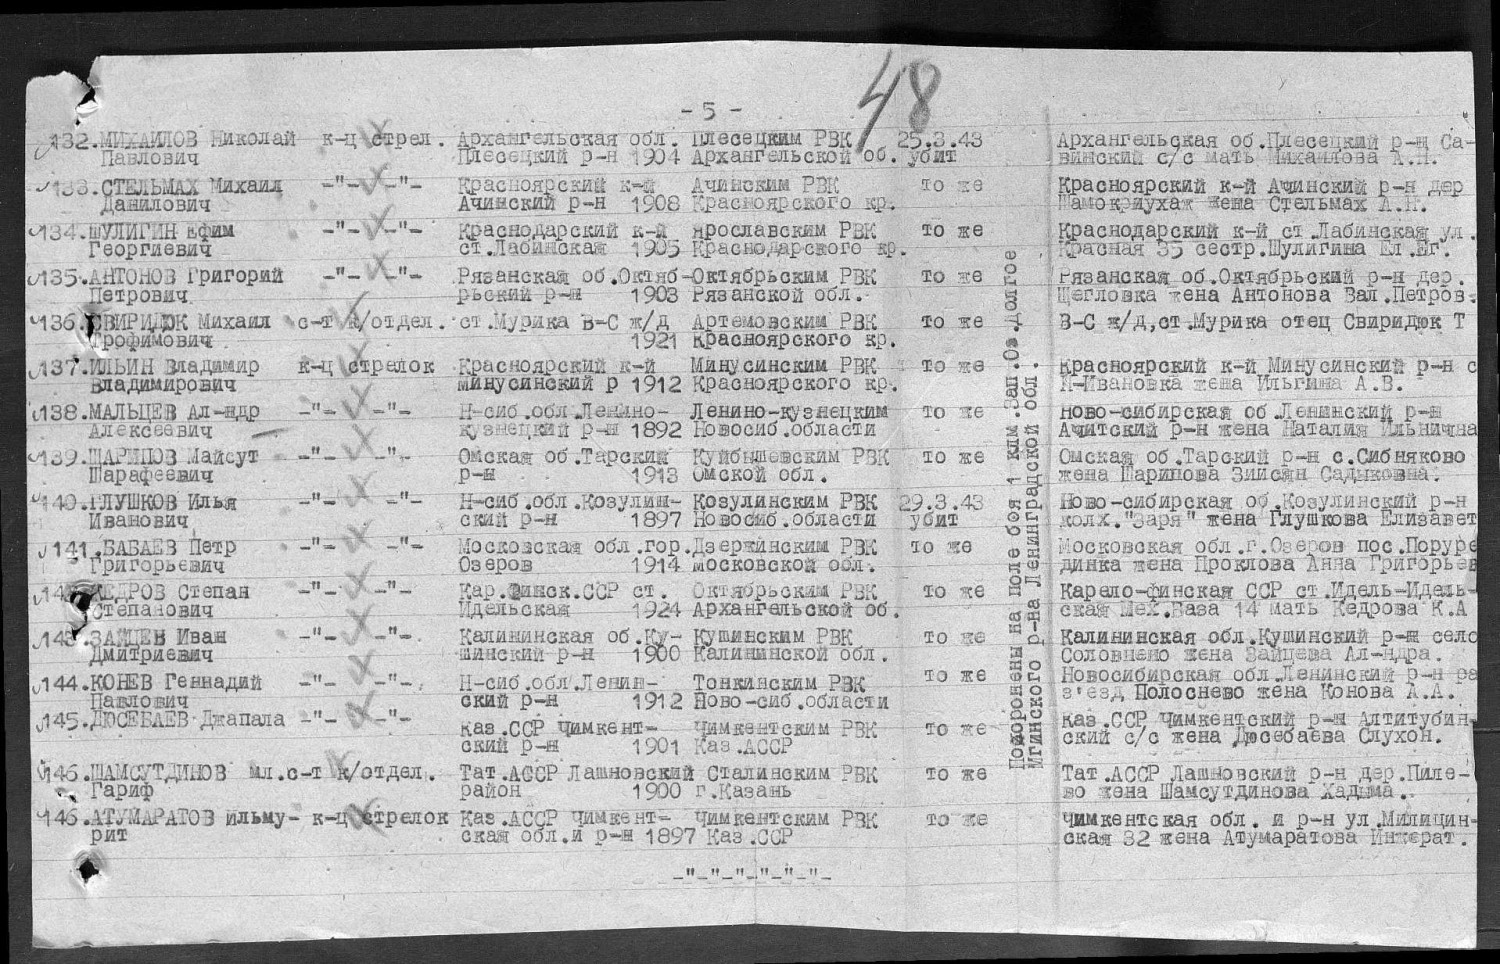 48
- 5 -
132.МИХАИЛОВ Николай к-ц стрел. Архангельская обл. Плесецким РВК 25.3.43 Архангельская об.Плесецкий р-н Са-
Павлович Плесецкий р-н 1904 Архангельской об. убит винский с/с мать Михаилова А.Н.
133.СТЕЛЬМАХ Михаил -"- -"- Красноярский к-й Ачинским РВК то же Красноярский к-й Ачинский р-н дер
Данилович Ачинский р-н 1908 Красноярского кр. Шамокриухах жена Стельмах А.Н.
134.ШУЛИГИН Ефим -"- -"- Краснодарский к-й Ярославским РВК то же Краснодарский к-й ст.Лабинская ул.
Георгиевич ст.Лабинская 1905 Краснодарского кр. Красная 35 сестр.Шулигина Ел.Ег.
135.АНТОНОВ Григорий -"- -"- Рязанская об.Октяб- Октябрьским РВК то же Рязанская об.Октябрьский р-н дер.
Петрович рьский р-н 1903 Рязанской обл. Щегловка жена Антонова Вал.Петров.
136.СВИРИДЮК Михаил с-т к/отдел. ст.Мурика В-С ж/д Артемовским РВК то же В-С ж/д,ст.Мурика отец Свиридюк Т
Трофимович 1921 Красноярского кр.
137.ИЛЬИН Владимир к-ц стрелок Красноярский к-й Минусинским РВК то же Красноярский к-й Минусинский р-н с
Владимирович Минусинский р 1912 Красноярского кр. И-Ивановка жена Ильгина А.В.
138.МАЛЬЦЕВ Ал-ндр -"- -"- Н-сиб.обл.Ленино- Ленино-кузнецким то же Ново-сибирская об.Ленинский р-н
Алексеевич кузнецкий р-н 1892 Новосиб.области Ачитский р-н жена Наталия Ильнична
139.ШАРИПОВ Майсут -"- -"- Омская об.Тарский Куйбышевским РВК то же Омская об.Тарский р-н с.Сибняково
Шарафеевич р-н 1913 Омской обл. жена Шарипова Зиисян Садыковна.
140.ГЛУШКОВ Илья -"- -"- Н-сиб.обл.Козулин- Козулинским РВК 29.3.43 Ново-сибирская об.Козулинский р-н
Иванович ский р-н 1897 Новосиб.области убит колх."Заря" жена Глушкова Елизавет
141.БАБАЕВ Петр -"- -"- Московская обл.гор. Дзержинским РВК то же Московская обл.г.Озеров пос.Поруре
Григорьевич Озеров 1914 Московской обл. динка жена Проклова Анна Григорьев
142.КЕДРОВ Степан -"- -"- Кар.Финск.ССР ст. Октябрьским РВК то же Карело-финская ССР ст.Идель-Идель-
Степанович Идельская 1924 Архангельской об. ская Мех.База 14 мать Кедрова К.А
143.ЗАЙЦЕВ Иван -"- -"- Калининская об.Ку- Кушинским РВК то же Калининская обл.Кушинский р-н село
Дмитриевич шинский р-н 1900 Калининской обл. Соловнено жена Зайцева Ал-ндра.
144.КОНЕВ Геннадий -"- -"- Н-сиб.обл.Ленин- Тонкинским РВК то же Новосибирская обл.Ленинский р-н ра
Павлович ский р-н 1912 Ново-сиб.области з'езд Полоснево жена Конова А.А.
145.ДЮСЕБАЕВ Джапала -"- -"- Каз.ССР Чимкент- Чимкентским РВК то же Каз.ССР Чимкентский р-н Алтитубин-
ский р-н 1901 Каз.АССР ский с/с жена Дюсебаева Слухон.
146.ШАМСУТДИНОВ мл.с-т к/отдел. Тат.АССР Лашновский Сталинским РВК то же Тат.АССР Лашновский р-н дер.Пиле-
Гариф район 1900 г.Казань во жена Шамсутдинова Хадыма.
146.АТУМАРАТОВ Ильму- к-ц стрелок Каз.АССР Чимкент- Чимкентским РВК то же Чимкентская обл. и р-н ул.Милицин-
рит ская обл.и р-н 1897 Каз.ССР ская 32 жена Атумаратова Инжерат.
Похоронены на поле боя 1 клм.Зап.Оз.Долгое
Мгинского р-на Ленинградской обл.
-"-"-"-"-"-